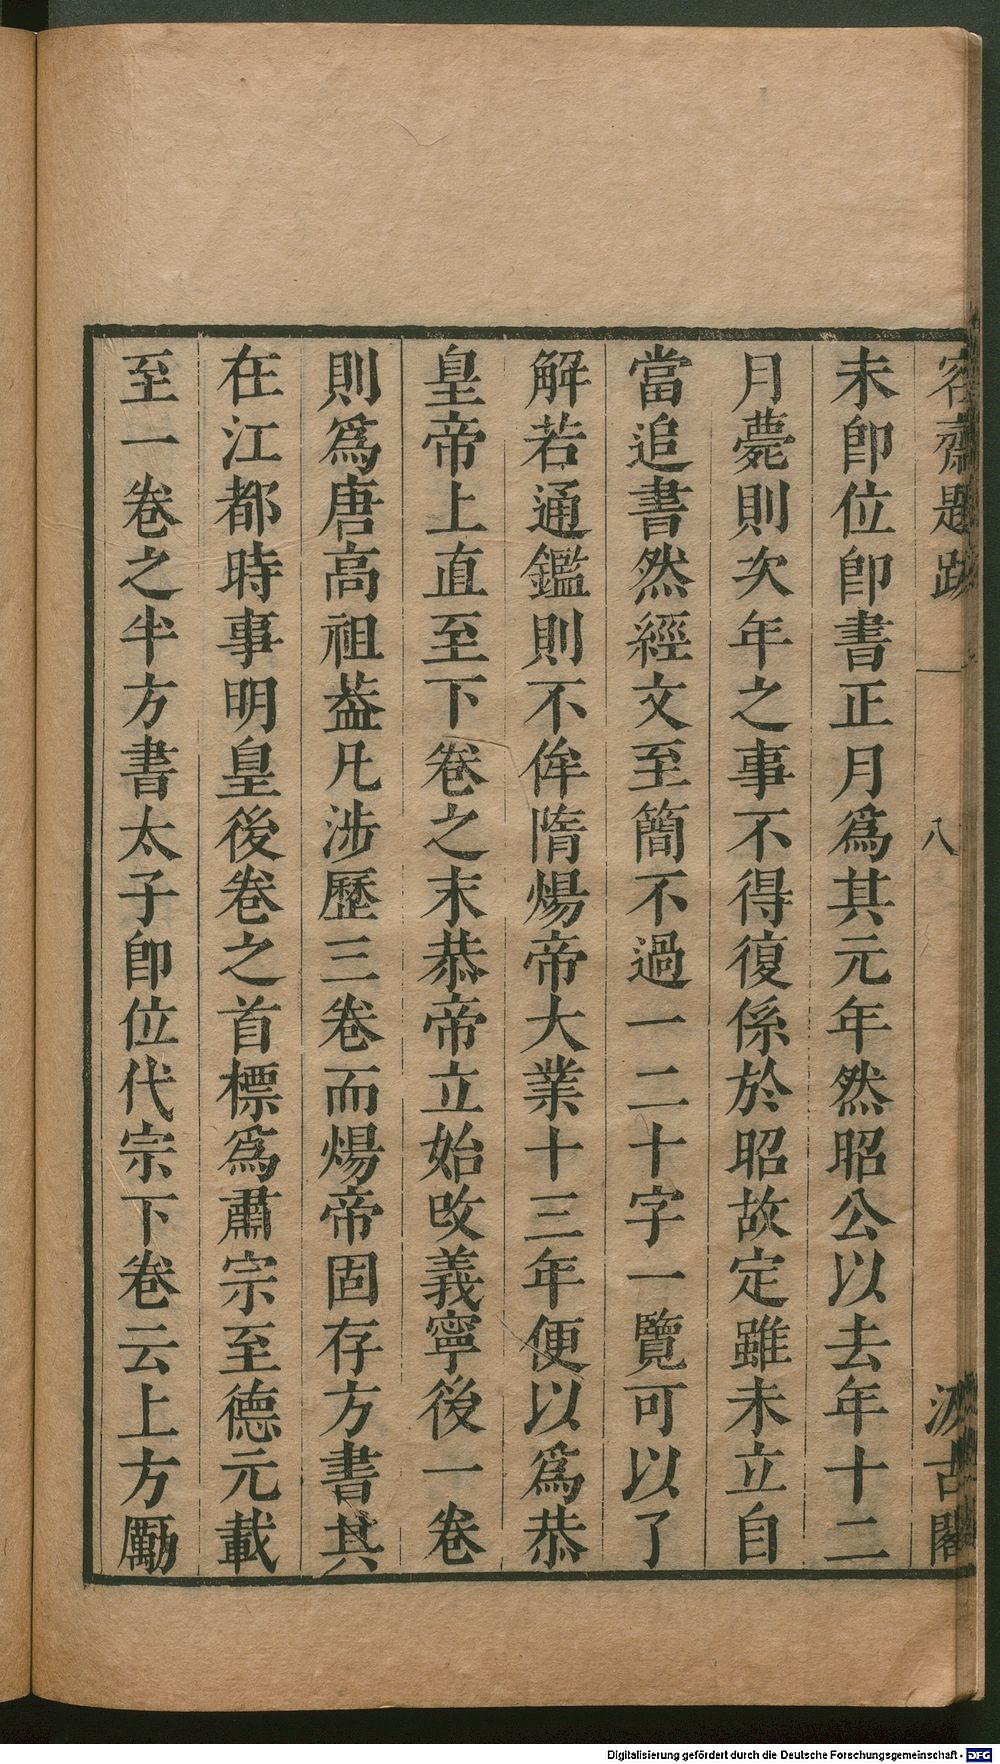 容齋題跋 一 八 汲古閣
未卽位卽書正月爲其元年然昭公以去年十二
月薨則次年之事不得復係於昭故定雖未立自
當追書然經文至簡不過一二十字一覽可以了
解若通鑑則不侔隋煬帝大業十三年便以爲恭
皇帝上直至下卷之末恭帝立始改義寧後一卷
則爲唐高祖葢凡涉歷三卷而煬帝固存方書其
在江都時事明皇後卷之首標爲肅宗至德元載
至一卷之半方書太子卽位代宗下卷云上方勵
Digitalisierung gefördert durch die Deutsche Forschungsgemeinschaft - DFG